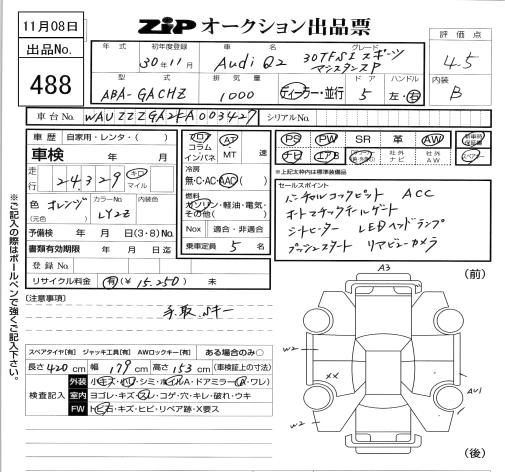 11月08日
ZIP オークション出品票
出品No.
488
年式 初年度登録 車名 グレード
30年11月 Audi Q2 30TFSI スポーツ
型式 排気量 ドア ハンドル
ABA-GACHZ 1000 ディーラー・並行 5 左・右
評価点
4.5
内装
B
車台No. WAUZZZGA2KA003427 シリアルNo.
車歴 自家用・レンタ・( )
車検 年 月
走行 24,329 キロ マイル
色 オレンジ カラーNo. LY2Z 内装色
(元色)
予備検 年 月(3・8)No.
書類有効期限 年 月 日迄
登録No.
リサイクル料金 有(¥15,250) 未
フロア コラム インパネ AT MT 速
冷房
無・C・AC・AAC( )
燃料
ガソリン・軽油・電気・その他( )
Nox 適合・非適合
乗車定員 5 名
PS PW SR 革 AW
ナビ エアB 社外ナビ 社外AW
新車時保証書
スペアキー
※上記太枠内は標準装備品
セールスポイント
バーチャルコックピット ACC
オートマチックテールゲート
シートヒーター LEDヘッドランプ
プッシュスタート リアビューカメラ
※ご記入の際はボールペンで強くご記入下さい。
[注意事項]
手、取、Sキー
スペアタイヤ[有] ジャッキ工具[有] AWロックキー[有] ある場合のみ○
長さ 420 cm 幅 179 cm 高さ 153 cm (車検証上の寸法)
検査記入
外装 小キズ・小凹・シミ・ホイルA・ドアミラー(A・ワレ)
室内 ヨゴレ・キズ・スレ・コゲ・穴・キレ・破れ・ウキ
FW トビ石・キズ・ヒビ・リペア跡・X要ス
A3
(前)
W2
XX
AU1
W2
(後)